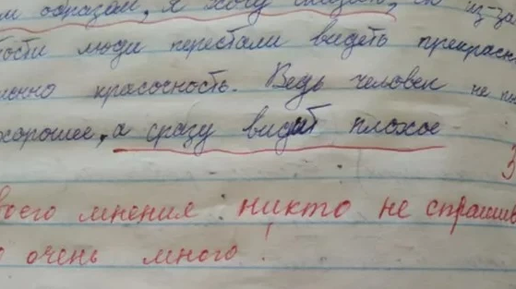 образом, я хочу сказать, из-за
люди перестали видеть прекрасн
красочность. Ведь человек не
хорошее, а сразу видит плохое
воего мнения никто не спрашив
очень много!